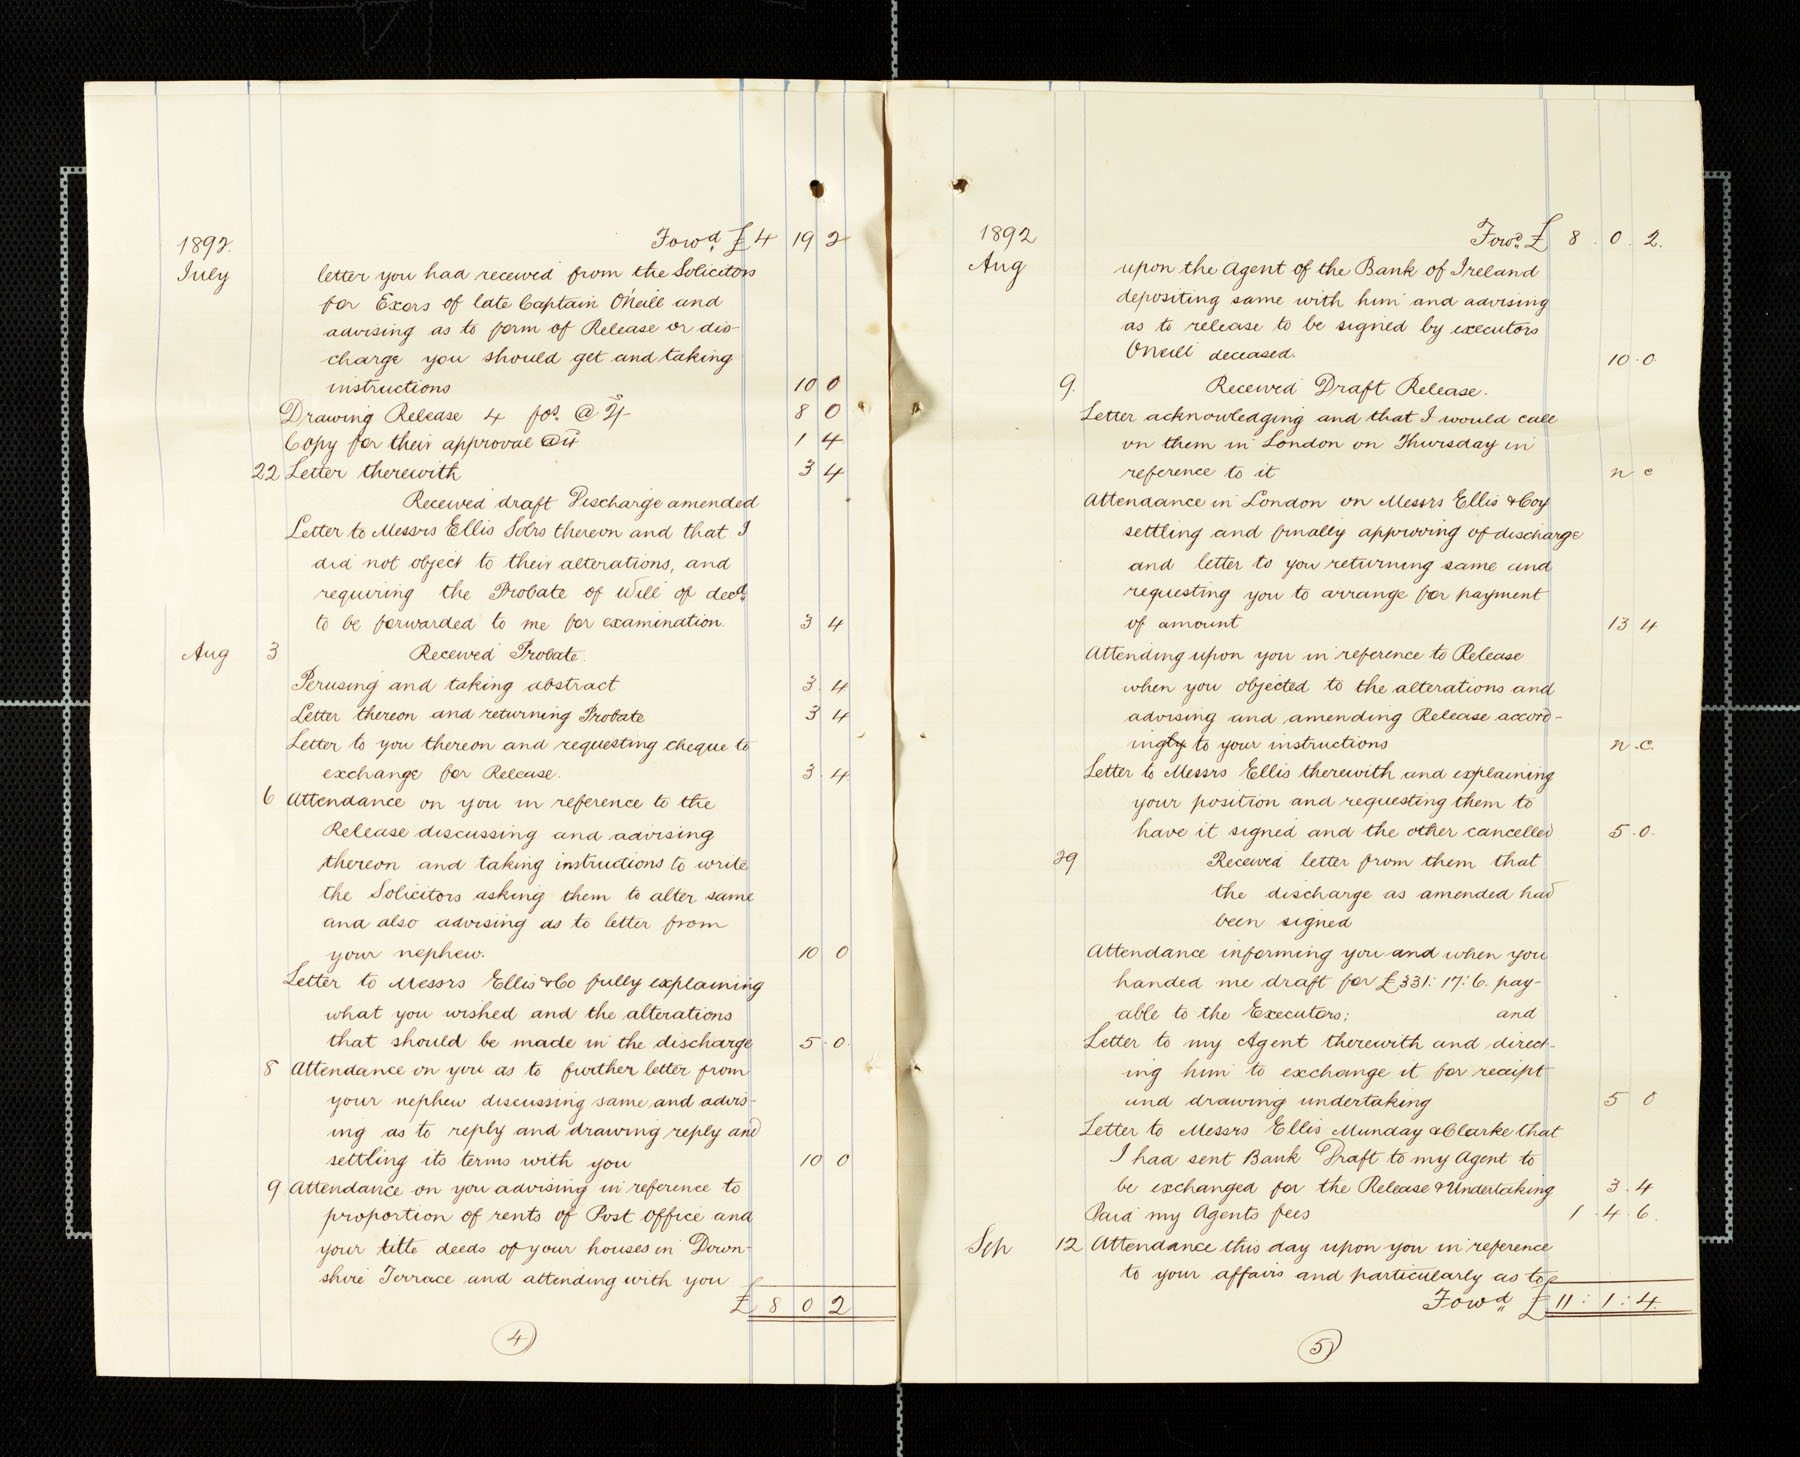 1892. Fowd. £4 19 2
July letter you had received from the Solicitors
for Exors of late Captain O'Neill and
advising as to form of Release or dis-
charge you should get and taking
instructions 10 0
Drawing Release 4 fos. @ 2/- 8 0
Copy for their approval @ 4 1 4
22 Letter therewith 3 4
Received draft Discharge amended
Letter to Messrs Ellis Solrs thereon and that I
did not object to their alterations, and
requiring the Probate of Will of decd.
to be forwarded to me for examination. 3 4
Aug 3 Received Probate.
Perusing and taking abstract 3 . 4
Letter thereon and returning Probate 3 4
Letter to you thereon and requesting cheque to
exchange for Release. 3 . 4
6 Attendance on you in reference to the
Release discussing and advising
thereon and taking instructions to write
the Solicitors asking them to alter same
and also advising as to letter from
your nephew. 10 0
Letter to Messrs Ellis & Co fully explaining
what you wished and the alterations
that should be made in the discharge 5 . 0.
8 Attendance on you as to further letter from
your nephew discussing same and advis-
ing as to reply and drawing reply and
settling its terms with you 10 0
9 Attendance on you advising in reference to
proportion of rents of Post Office and
your title deeds of your houses in Down-
shire Terrace and attending with you
£ 8 0 2
4
1892 Fowd. £ 8 . 0 . 2.
Aug upon the Agent of the Bank of Ireland
depositing same with him and advising
as to release to be signed by executors
O'Neill deceased. 10 . 0.
9. Received Draft Release.
Letter acknowledging and that I would call
on them in London on Thursday in
reference to it n c
Attendance in London on Messrs Ellis & Coy
settling and finally approving of discharge
and letter to you returning same and
requesting you to arrange for payment
of amount 13 4
Attending upon you in reference to Release
when you objected to the alterations and
advising and amending Release accord-
ingly to your instructions n . c.
Letter to Messrs Ellis therewith and explaining
your position and requesting them to
have it signed and the other cancelled 5 . 0.
29 Received letter from them that
the discharge as amended had
been signed
Attendance informing you and when you
handed me draft for £331: 17: 6. pay-
able to the Executors; and
Letter to my Agent therewith and direct-
ing him to exchange it for receipt
and drawing undertaking 5 0
Letter to Messrs Ellis Munday & Clarke that
I had sent Bank Draft to my Agent to
be exchanged for the Release & Undertaking 3 . 4
Paid my Agents fees 1 . 4 . 6.
Sep 12 Attendance this day upon you in reference
to your affairs and particularly as to
Fowd £ 11 : 1 : 4.
5